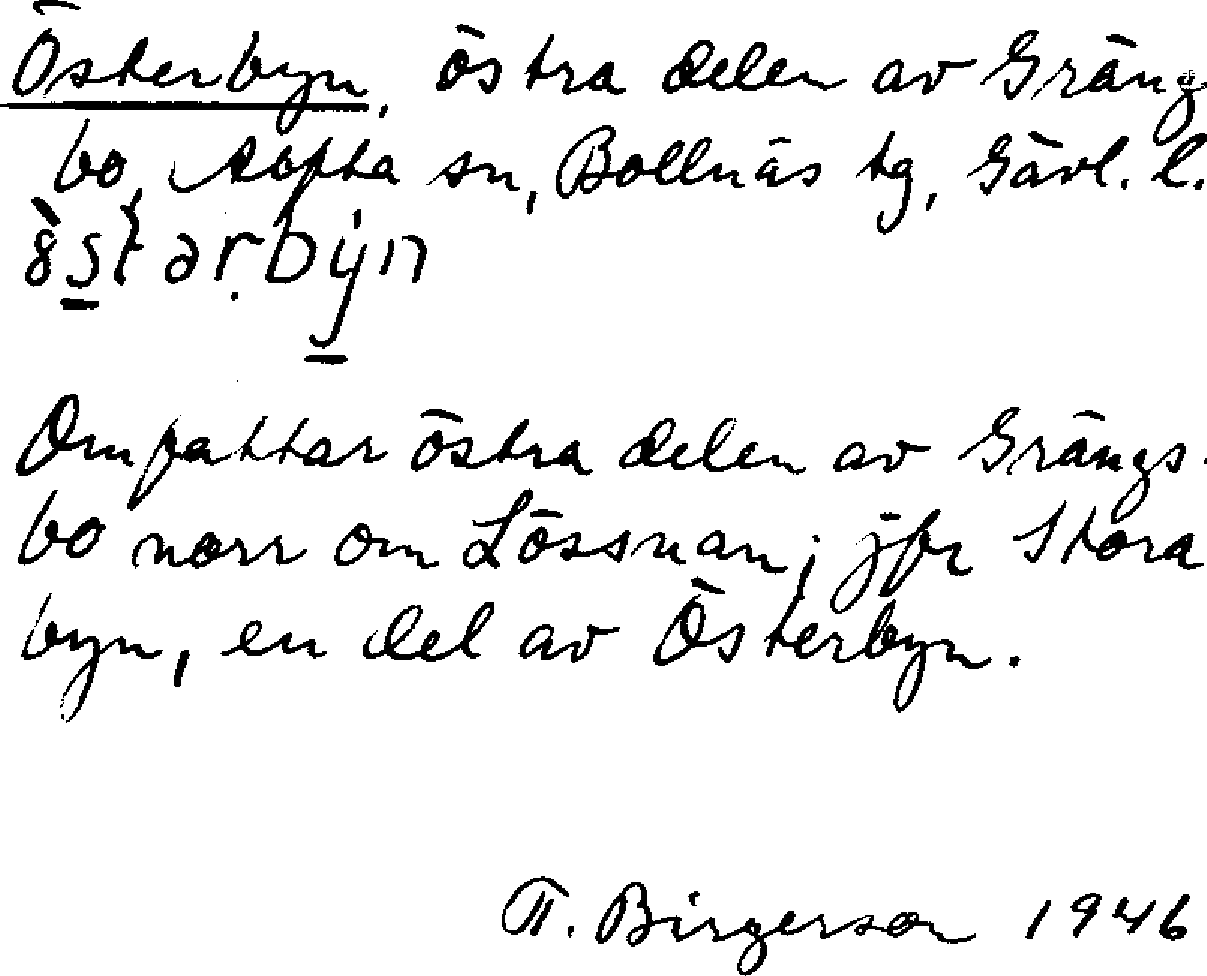 Österbyn, östra delen av Gräng
bo, Alfta sn, Bollnäs tg, Gävl. l.
Omfattar östra delen av Grängs-
bo norr om Lössnan; jfr Stora
byn, en del av Österbyn.
T. Birgerson 1946